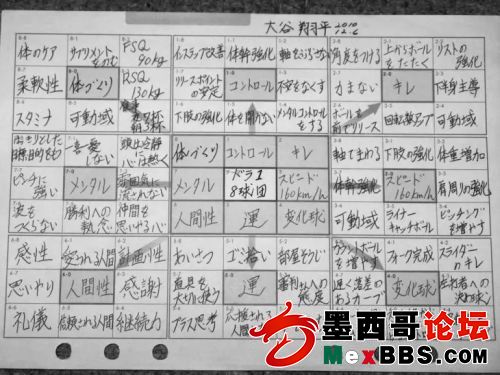 大谷 翔平 2010 12.6
体のケア サプリメントをのむ FSQ 90kg インステップ改善 体幹強化 軸をぶらさない 角度をつける 上からボールをたたく リストの強化
柔軟性 体づくり RSQ 130kg リリースポイントの安定 コントロール 不安をなくす 力まない キレ 下半身主導
スタミナ 可動域 食事 夜7杯 朝3杯 下肢の強化 体を開かない メンタルコントロールをする ボールを前でリリース 回転数アップ 可動域
はっきりとした目標、目的をもつ 一喜一憂しない 頭は冷静に心は熱く 体づくり コントロール キレ 軸でまわる 下肢の強化 体重増加
ピンチに強い メンタル 雰囲気に流されない メンタル ドラ1 8球団 スピード 160km/h 体幹強化 スピード 160km/h 肩周りの強化
波をつくらない 勝利への執念 仲間を思いやる心 人間性 運 変化球 可動域 ライナーキャッチボール ピッチングを増やす
感性 愛される人間 計画性 あいさつ ゴミ拾い 部屋そうじ カウントボールを増やす フォーク完成 スライダーのキレ
思いやり 人間性 感謝 道具を大切に使う 運 審判さんへの態度 遅く落差のあるカーブ 変化球 左打者への決め球
礼儀 信頼される人間 継続力 プラス思考 応援される人間
墨西哥论坛
MexBBS.com